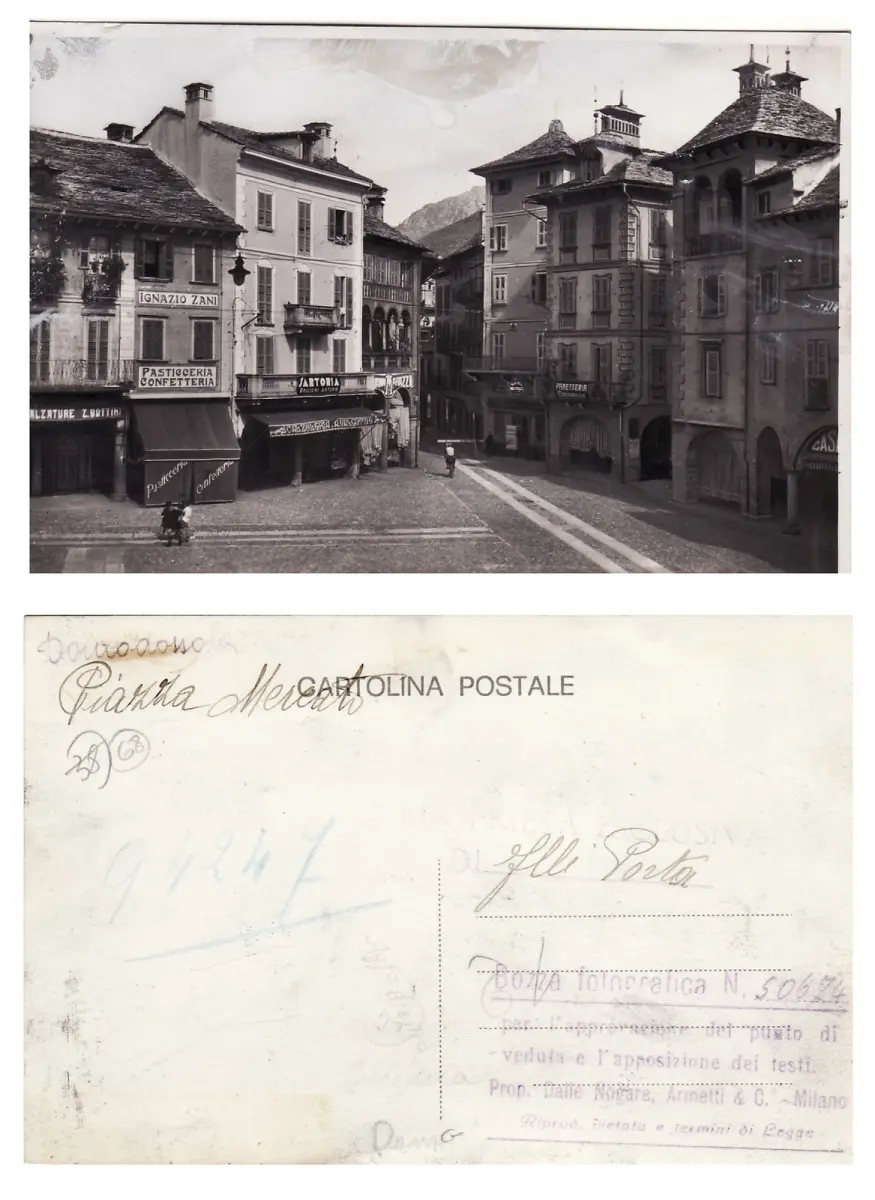 IGNAZIO ZANI
PASTICCERIA
CONFETTERIA
CALZATURE Z. BOTTINI
SARTORIA
Pasticceria
Confetteria
PANETTERIA
CASA
Domodossola
Piazza Mercato
CARTOLINA POSTALE
28 68
94247
Flli Porta
Bozza fotografica N. 50674
per l'approvazione del punto di
veduta e l'apposizione dei testi.
Prop. Dalle Nogare, Armetti & C. - Milano
Riprod. vietata a termini di Legge
Domo